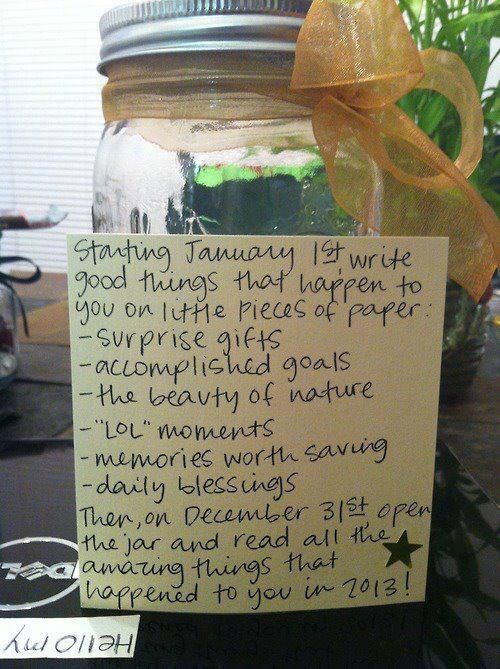 Starting January 1st, write
good things that happen to
you on little pieces of paper:
- surprise gifts
- accomplished goals
- the beauty of nature
- "LOL" moments
- memories worth saving
- daily blessings
Then, on December 31st, open
the jar and read all the
amazing things that
happened to you in 2013!
DELL
HELLO my